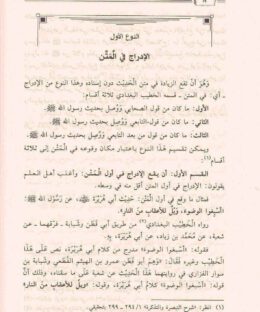 النوع الأول
الإدراج في الْمَتْن
وَهُوَ أنْ تقع الزيادة في متن الْحَدِيْث دون إسناده وهذا النوع من الإدراج
- أي: في المتن - قسمه الخطيب البغدادي ثلاثة أقسام:
الأول: ما كان من قول الصحابي وَوُصِل بحديث رسول الله ﷺ.
الثاني: ما كان من قول التابعي وَوُصِل بحديث رسول الله ﷺ.
الثالث: ما كان من قول من بعد التابعي وَوُصِل بحديث رسول الله ﷺ.
ويمكن تقسيم هَذَا النوع باعتبار مكان وقوعه في الْمَتْن إلى ثلاثة
أقسام(١):
القسم الأول: أن يقع الإدراج في أول الْمَتْن: وأغلب أهل العلم
يقولون: الإدراج في أول المتن أقل منه في وسطه.
فمثال ما وقع في أول الْمَتْن: حَدِيْث أبي هُرَيْرَةَ، عن رَسُوْل الله ﷺ:
«أسْبغوا الوُضوءَ، وَيْلٌ للأعقابِ مِنَ النارِ».
رواه الْخَطِيْب البغدادي من طريق أبي قَطَنٍ وشَبابة - فَرّقهما - عن
شعبة، عن مُحَمَّد بن زياد، عن أبي هُرَيْرَةَ، بهِ.
فقوله: «أسبغوا الوضوء» مدرج من كلام أبي هُرَيْرَةَ، نص عَلَى هَذَا
الخطيب فَقَالَ: «وَهِمَ أبو قطن عمرو بن الهيثم القُطَعي وشبابة بن
سوار الفزاري في روايتهما هَذَا الْحَدِيْث عن شعبة عَلَى ما سقناه، وذلك أنَّ
قوله: «أسبغوا الوضوء» كلام أبي هُرَيْرَةَ، وقوله: «ويلٌ للأعقابِ من النارِ»
(١) انظر: «شرح التبصرة والتذكرة» ١/ ٢٩٤ - ٢٩٩ بتحقيقي.